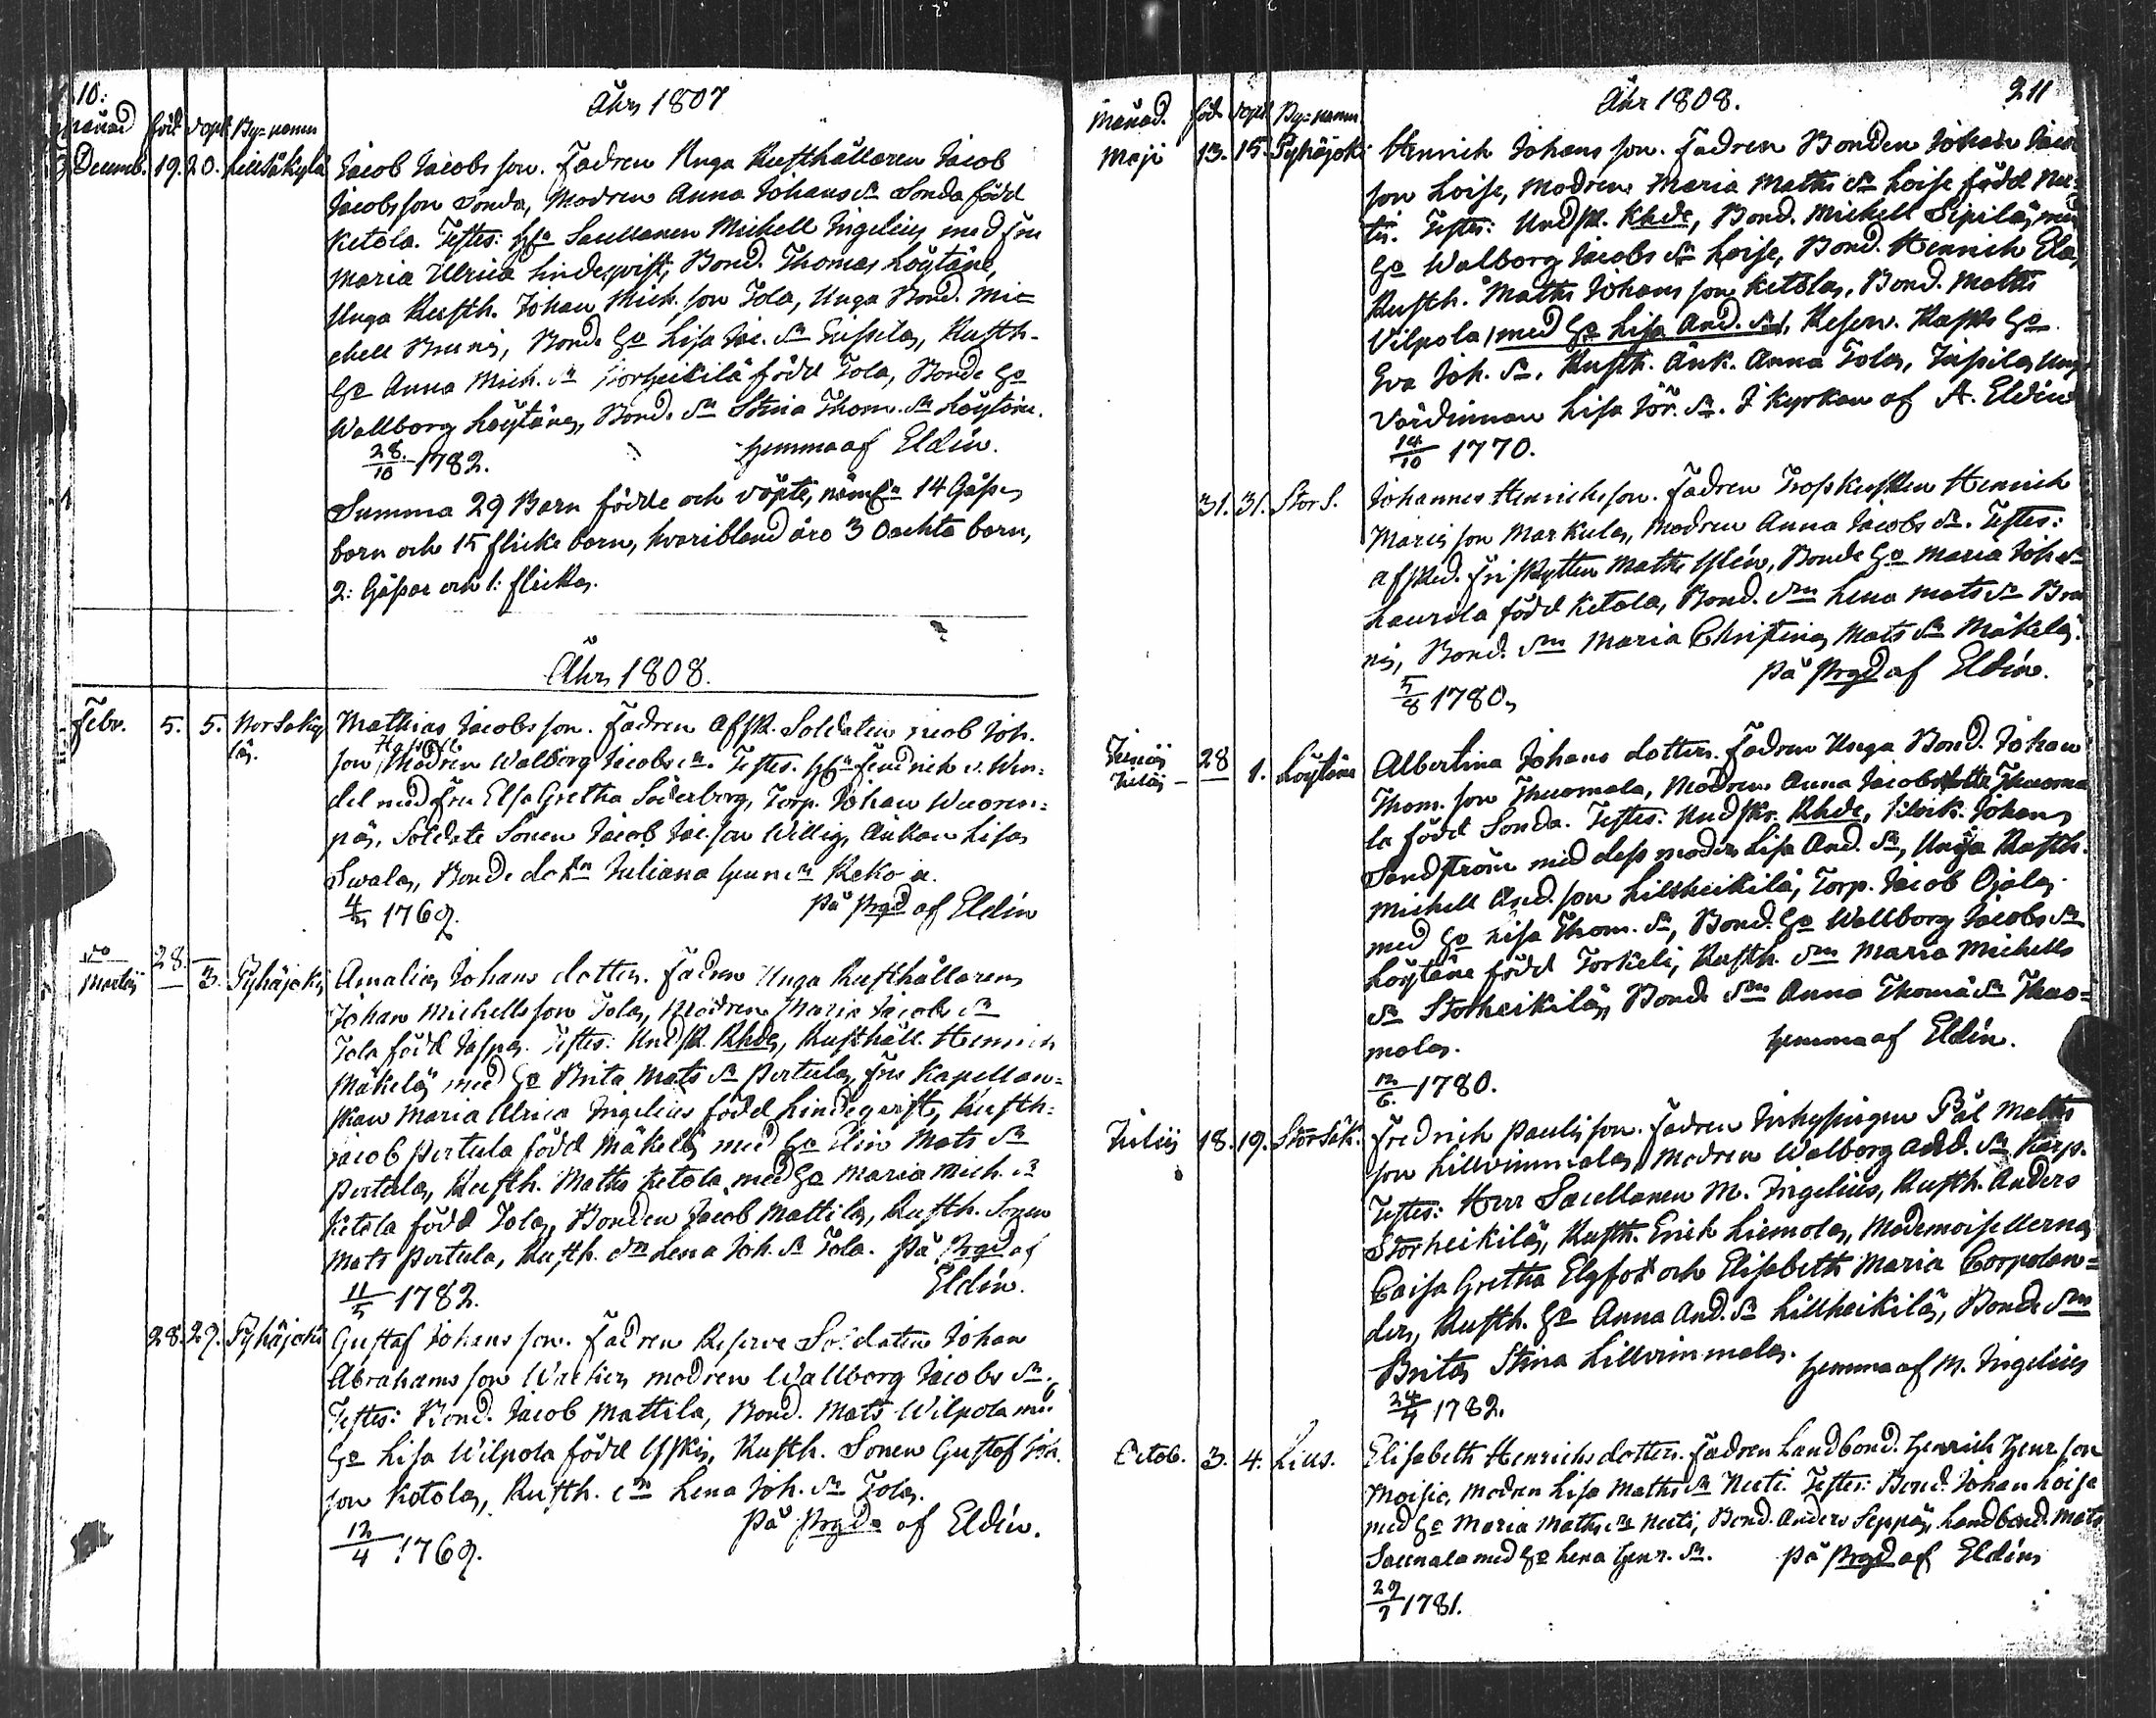 10:
Åhr 1807
Månad född döpt By=namn
Decemb. 19. 20. Lillsäkylä Jacob Jacobs son. Fadren Unga Rusthållaren Jacob
Jacobsson Sonda, Modren Anna Johans dr Sonda född
Ketola. Testes: Sacellanen Michell Ingelius med fru
Maria Ulrica Lindeqvist, Bond. Thomas Löytäne,
Unga Rusth. Johan Mick. son Tola, Unga Bond. Mi=
chell Brunis, Bond. h:o Lisa Jac. dr Jussila, Rusth.
h:o Anna Mich. dr Norheikilä född Tola, Bonde h:o
Wallborg Löytäne, Bond. dr Stina Thom. dr Löytäne.
28/10 1782. hemma af Eldén.
Summa 29 Barn födde och döpte, 14 Gåsse
barn och 15 flicke barn, hvaribland äro 3 Oächta barn,
2: Gåssar och 1: flicka.
Åhr 1808.
Febr. 5. 5. Norsäky Mathias Jacobsson. Fadren afsk. Soldaten Jacob Joh.
lä. son Modren Walborg Jacobs dr. Testes. Fendrich v. Wen=
del med fru Elsa Gretha Söderberg, Torp. Johan Wuoren=
pä, Soldate Sonen Jacob Jac. son Willig, Änkan Lisa
Swala, Bonde Juliana
1769. På Prgd af Eldén
28.
Martij 3. Pyhäjoki Amalia Johans dotter. Fadren Unga Rusthållaren
Johan Michellsson Tola, Modren Maria Jacobs dr
Tola född Jaspa. Testes: Undsk. Rhde, Rusthåll. Henrich
Mäkelä med h:o Brita Mats dr Pertula, Fru Kapellan=
skan Maria Ulrica Ingelius född Lindeqvist, Rusth.
Jacob Pertula född Mäkelä med h:o Elin Mats dr
Pertula, Rusth. Maths Ketola med h:o Maria Mich. dr
Ketola född Tola, Bonden Jacob Mattila, Rusth. Sonen
Mats Pertula, Rusth. dr Lena Joh. dr Tola. På Prgd af
11/5 1782. Eldén.
28. 29. Pyhäjoki Gustaf Johans son. Fadren Reserve Soldaten Johan
Abrahams son modren Wallborg Jacobs dr.
Testes: Bond. Jacob Mattila, Bond. Mats Wilpola
h:o Lisa Wilpola född Rusth. Sonen Gustaf Joh.
son Ketola, Rusth. dr Lena Joh. dr Tola.
12/4 1769. På Prgd af Eldén.
Åhr 1808. 211
Månad. född döpt By=namn
Maji 13. 15. Pyhäjoki Henrich Johans son. Fadren Bonden Johan
son Loise, Modren Maria Maths dr Loise född Nee=
ti. Testes: Undsk. Rhde, Bond. Michell Sipilä, med
h:o Walborg Jacobs dr Loise, Bond. Henrich Ela,
Rusth. Maths Johans son Ketola, Bond. Maths
Vilpola, med h:o Lisa And. dr, Reserv. h:o
Eva Joh. dr. Rusth. Änk. Anna Tola,
Värdinnan Lisa dr. I kyrkan af A. Eldén
14/10 1770.
31. 31. Stor S. Johannes Henrichsson. Fadren Henrich
son Markula, Modren Anna Jacobs dr. Testes:
Afsked. Maths Bonde h:o Maria Joh dr
Laurila född Ketola, Bond. dr Lena Mats dr
Bond. dr Maria Christina Mats dr Mäkelä.
5/8 1780. På Prgd af Eldén.
Junij 28
Julij 1. Löytäne Albertina Johans dotter. Fadren Unga Bond. Johan
Thom. son Thuomala, Modren Anna Jacobs dotter Thuoma
la född Sonda. Testes: Undsk. Rhde, Johan
Sandström med dess moder Lisa And. dr, Unga Rusth.
Michell And. son Lillheikilä, Torp. Jacob Ojala,
med h:o Lisa Thom. dr, Bond. h:o Wallborg Jacobs dr
Löytäne född Torkeli, Rusth. dr Maria Michells
dr Storheikilä, Bond. dr Anna Thomä dr Thuo=
mola. hemma af Eldén.
12/6 1780.
Julij 18. 19. Storsäk. Fredrich Paulsson. Fadren Inhysingen Pål Maths
son Lillvimmala, Modren Walborg And. dr Karp.
Testes: Herr Sacellanen M. Ingelius, Rusth. Anders
Storheikilä, Rusth. Erich Liemola, Mademoisellerna
Caisa Gretha Elgfot och Elisabeth Maria Corpolan=
der, Rusth. h:o Anna And. dr Lillheikilä, Bonde dr
Brita Stina Lillvimmala. hemma af M. Ingelius
24/4 1782.
Octob. 3. 4. Lius. Elisabeth Henrichs dotter. Fadren Landbond. Henrich Henr. son
Moisio, modren Lisa Maths dr Neeti. Testes: Bond. Johan Loise
med h:o Maria Maths dr Neeti, Bond. Anders Seppä, Landbond. Mats
Saunala med h:o Lena Henr. dr. På Prgd af Eldén
29/7 1781.